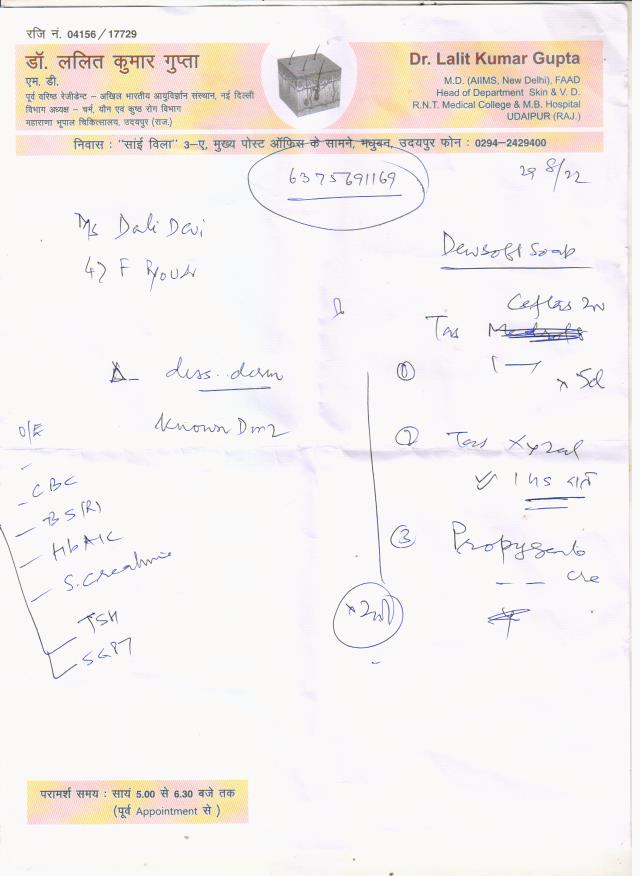 रजि नं. 04156 / 17729
डॉ. ललित कुमार गुप्ता
एम. डी.
पूर्व वरिष्ठ रेजीडेन्ट – अखिल भारतीय आयुर्विज्ञान संस्थान, नई दिल्ली
विभाग अध्यक्ष – चर्म, यौन एवं कुष्ठ रोग विभाग
महाराणा भूपाल चिकित्सालय, उदयपुर (राज.)
Dr. Lalit Kumar Gupta
M.D. (AIIMS, New Delhi), FAAD
Head of Department Skin & V. D.
R.N.T. Medical College & M.B. Hospital
UDAIPUR (RAJ.)
निवास : "सांई विला" 3-ए, मुख्य पोस्ट ऑफिस के सामने, मधुबन, उदयपुर फोन : 0294-2429400
6375691169
29 8/22
Dali Devi
47 F
Dewsoft Soap
Tab
① × 5d
Δ diss. derm
Known Dm2
② Tab Xyzal
1 HS
③
O/E
- CBC
- BS(R)
- HbA1C
- S. Creatinine
- TSH
- SGPT
परामर्श समय : सायं 5.00 से 6.30 बजे तक
(पूर्व Appointment से )